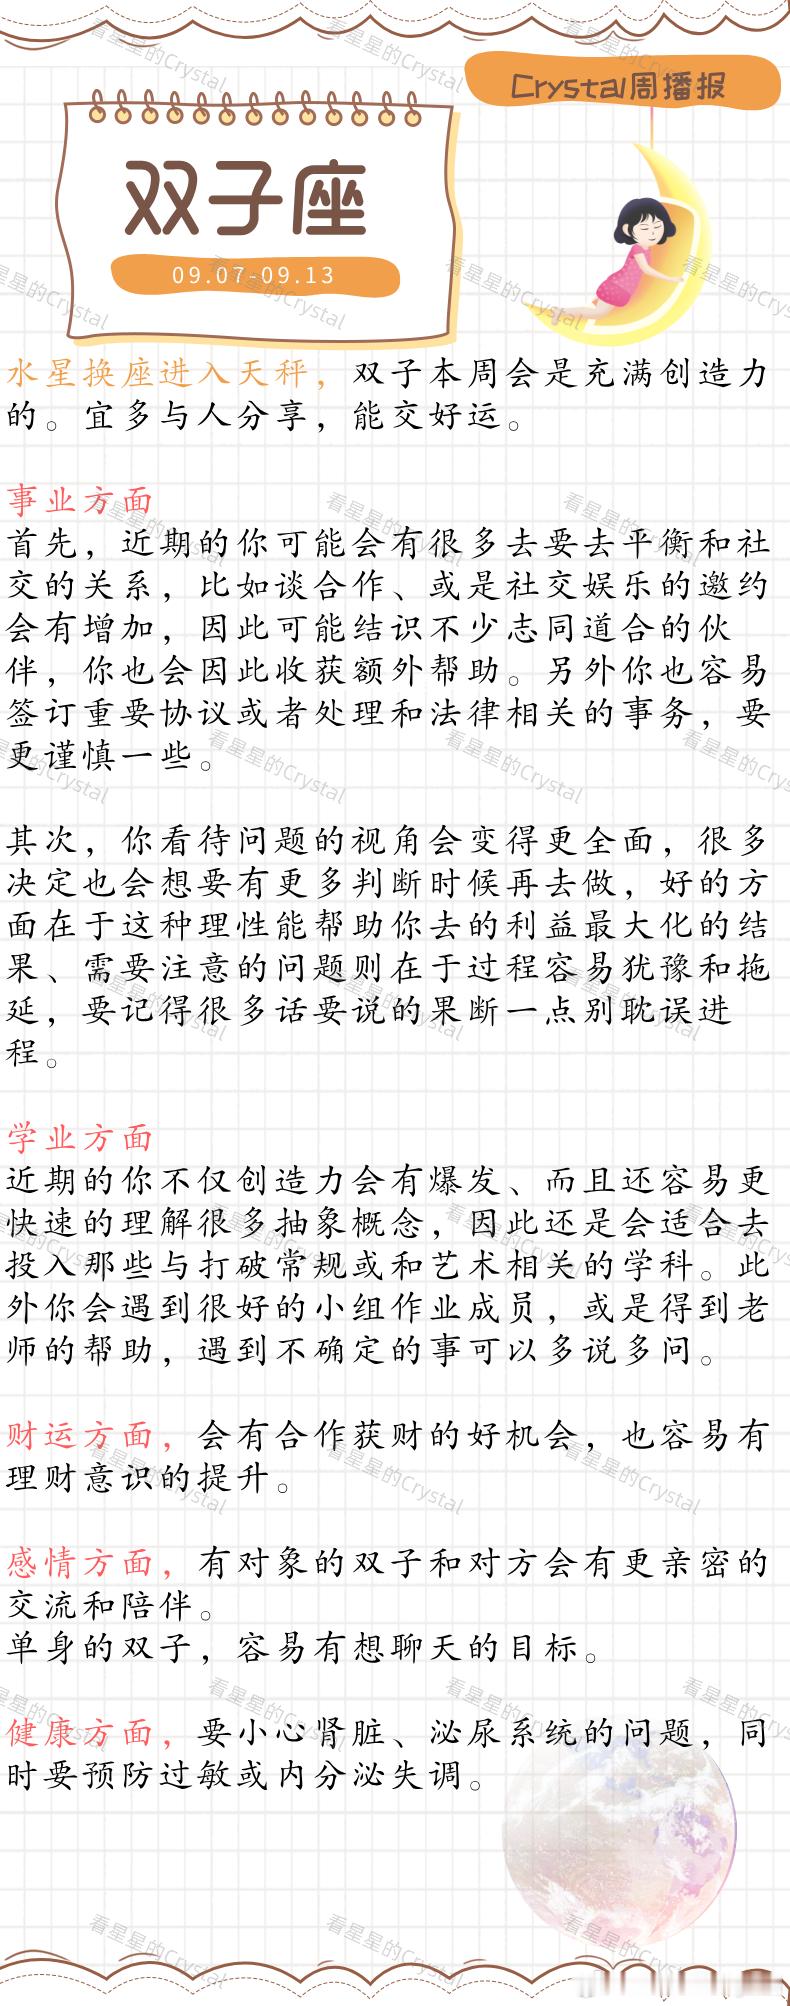 Crystal周播报
双子座
09.07-09.13
水星换座进入天秤，双子本周会是充满创造力
的。宜多与人分享，能交好运。
事业方面
首先，近期的你可能会有很多去要去平衡和社
交的关系，比如谈合作、或是社交娱乐的邀约
会有增加，因此可能结识不少志同道合的伙
伴，你也会因此收获额外帮助。另外你也容易
签订重要协议或者处理和法律相关的事务，要
更谨慎一些。
其次，你看待问题的视角会变得更全面，很多
决定也会想要有更多判断时候再去做，好的方
面在于这种理性能帮助你去的利益最大化的结
果、需要注意的问题则在于过程容易犹豫和拖
延，要记得很多话要说的果断一点别耽误进
程。
学业方面
近期的你不仅创造力会有爆发、而且还容易更
快速的理解很多抽象概念，因此还是会适合去
投入那些与打破常规或和艺术相关的学科。此
外你会遇到很好的小组作业成员，或是得到老
师的帮助，遇到不确定的事可以多说多问。
财运方面，会有合作获财的好机会，也容易有
理财意识的提升。
感情方面，有对象的双子和对方会有更亲密的
交流和陪伴。
单身的双子，容易有想聊天的目标。
健康方面，要小心肾脏、泌尿系统的问题，同
时要预防过敏或内分泌失调。
看星星的Crystal